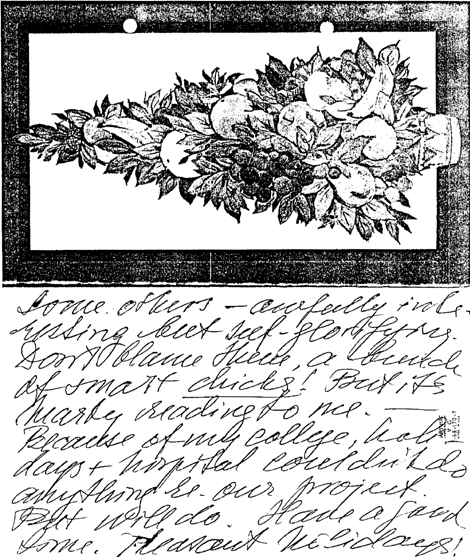 some others – awfully inte-
resting but self-glorifying.
Don't blame them, a bunch
of smart chicks! But it's
reading to me. —
Because of my college, holi
days + hospital couldn't do
anything re. our project.
But will do. Have a good
time. Pleasant Holidays!